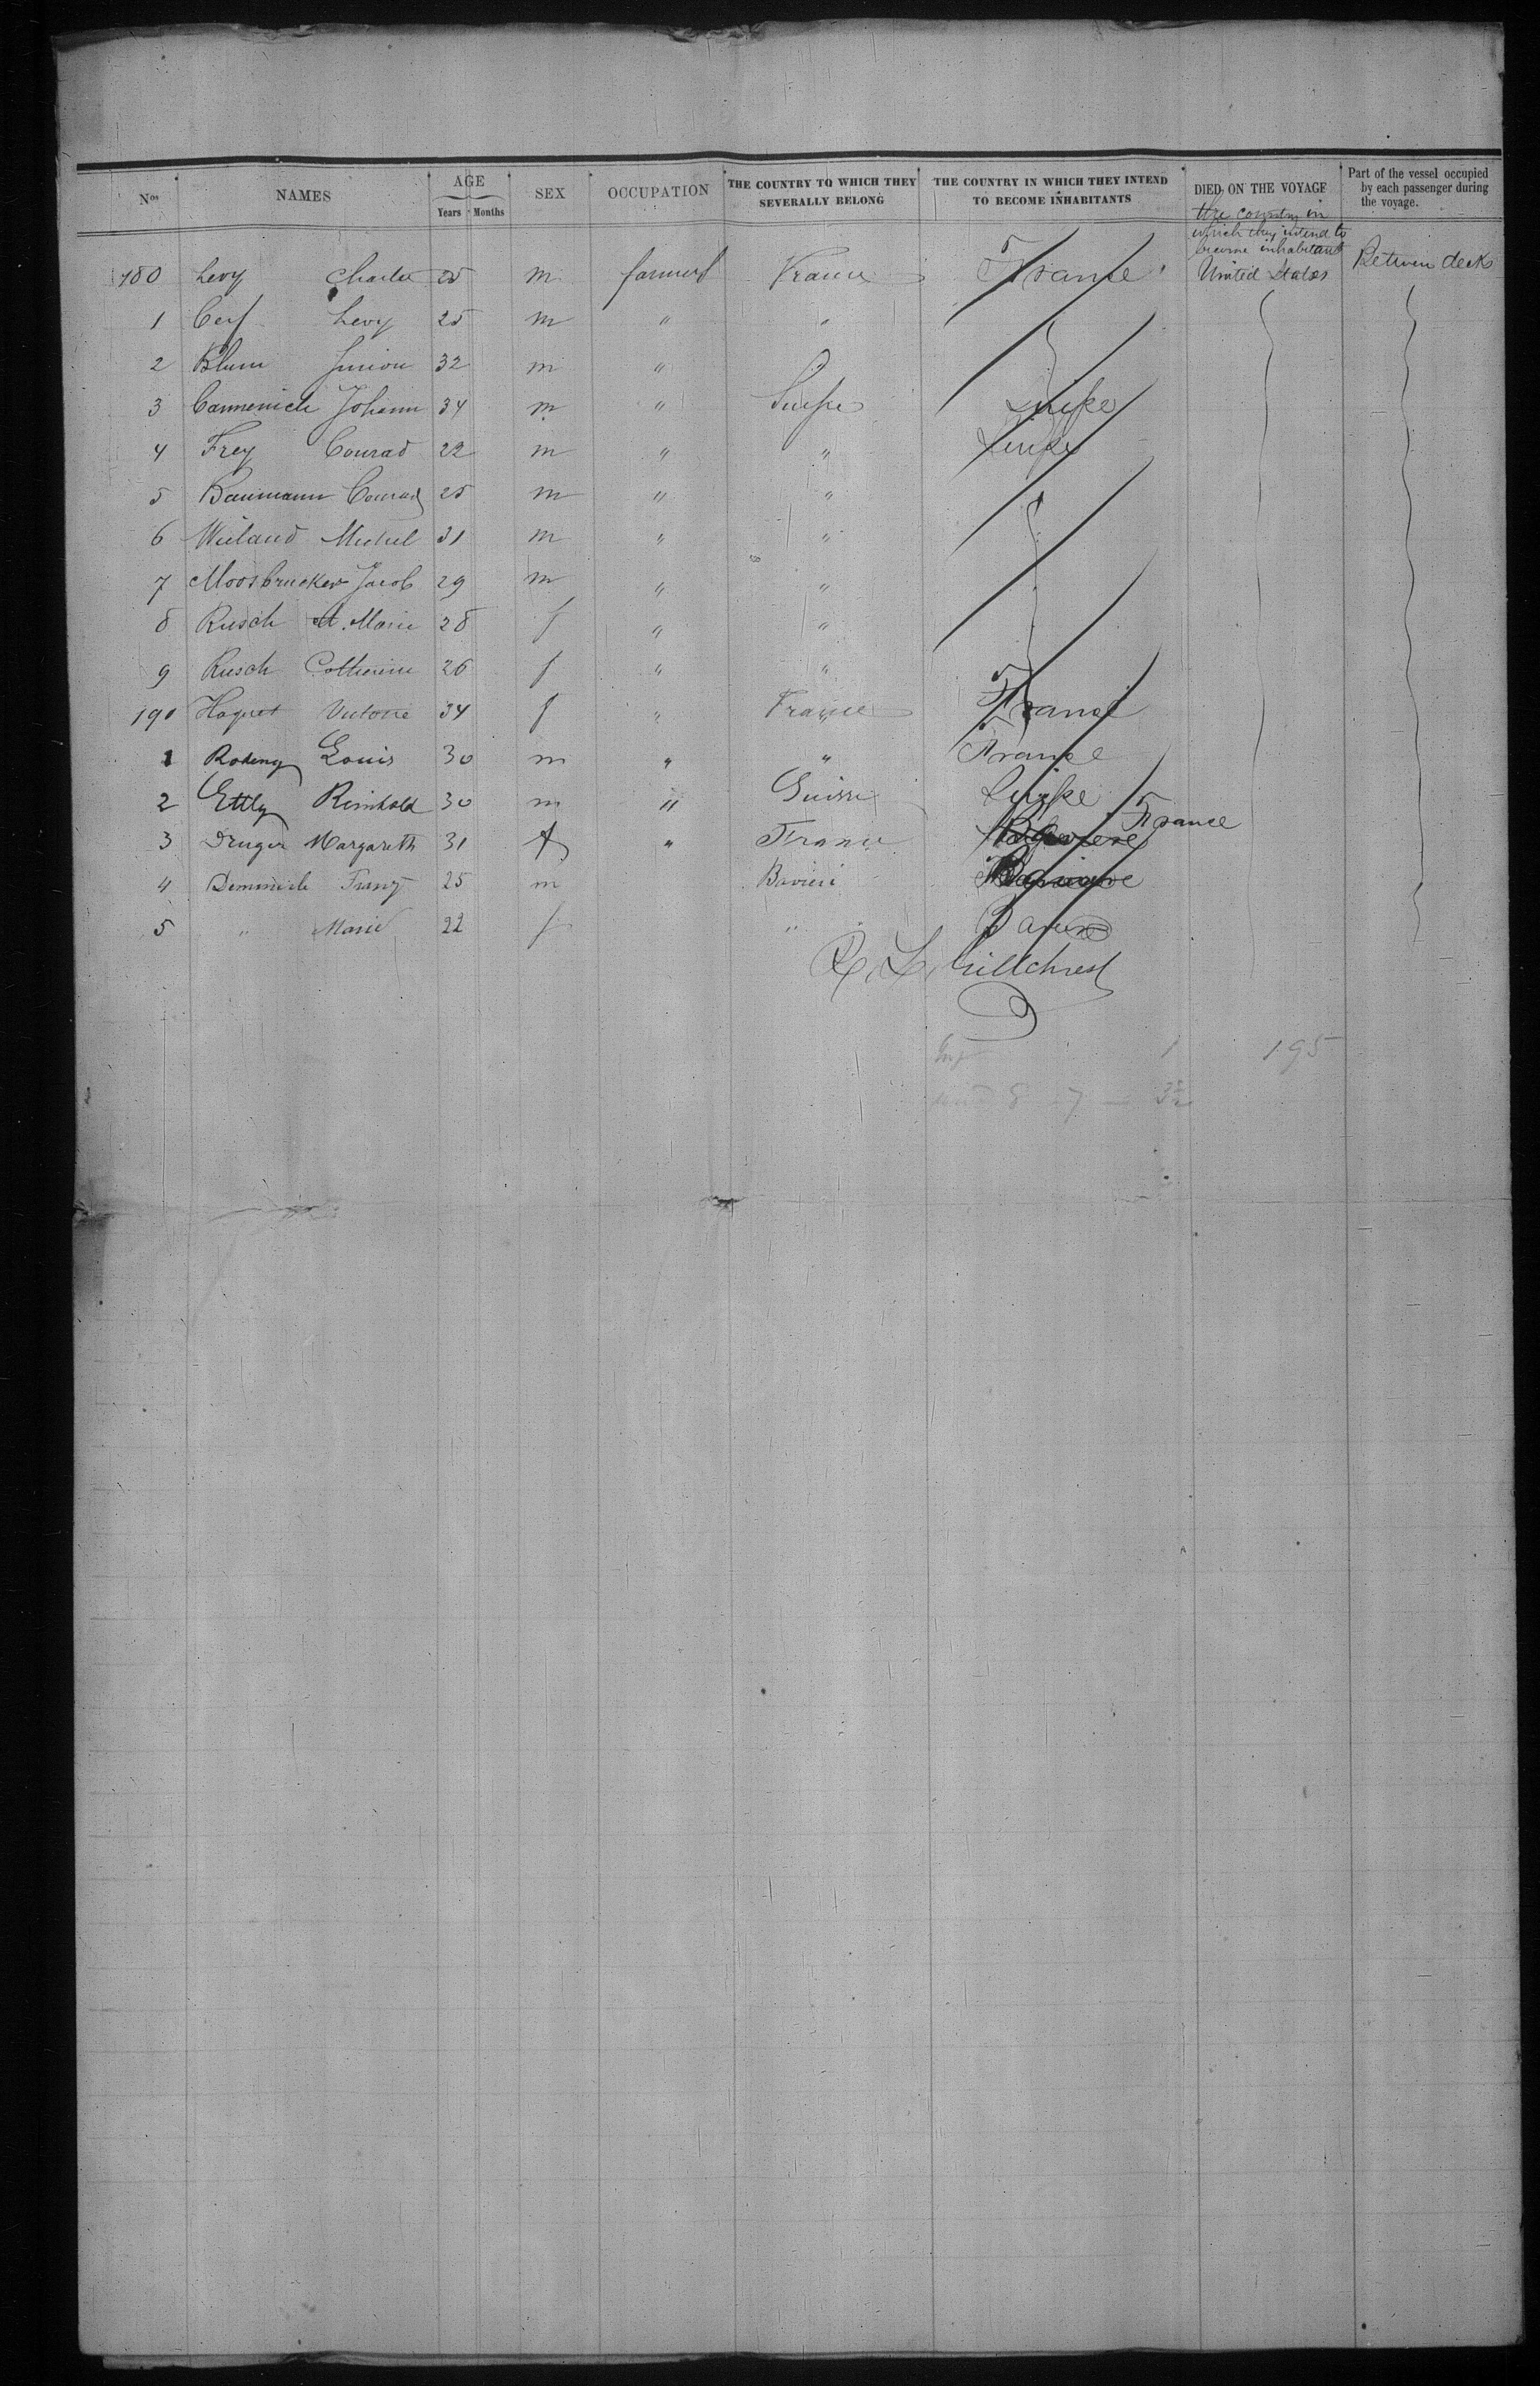 Nos NAMES AGE Years Months SEX OCCUPATION THE COUNTRY TO WHICH THEY SEVERALLY BELONG THE COUNTRY IN WHICH THEY INTEND TO BECOME INHABITANTS DIED ON THE VOYAGE Part of the vessel occupied by each passenger during the voyage.
the country in
which they intend to
become inhabitant
180 Levy Charles 25 m farmers France France United States Between deck
1 Cerf Levy 25 m " "
2 Blum 32 m "
3 Johann 34 m " Suisse Suisse
4 Frey Conrad 22 m " " Suisse
5 Baumann Conrad 25 m " "
6 Wieland Michel 31 m " "
7 Moosbrucker Jacob 29 m " "
8 Rusch A. Marie 28 f " "
9 Rusch Catherine 26 f " "
190 Haquet Victoire 34 f " France France
1 Louis 30 m " " France
2 Ettly Reinhold 30 m " Suisse Suisse
3 Margareth 31 f " France France
4 Franz 25 m Baviere Baviere
5 " Marie 22 f "
R. L. Gillchrest
1 195